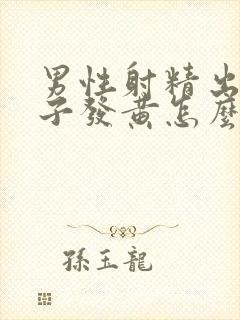 男性射精出
子發黃怎麼
孫玉龍